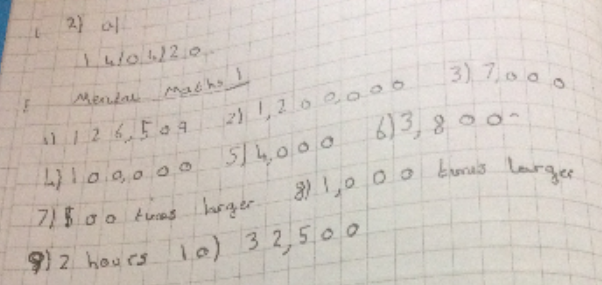 2) a)
14/04/20
Mental Maths 1
1) 126,509 2) 1,200,000 3) 7,000
4) 100,000 5) 4,000 6) 3,800
7) 500 times larger 8) 1,000 times larger
9) 2 hours 10) 32,500